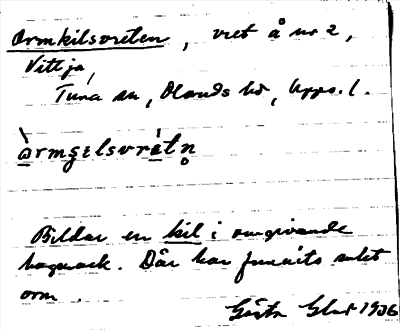 Ormkilsvreten, vret å nr 2,
Vittja,
Tuna sn, Olands hd, Upps. l.
òrmʂɛlsvrétn̥
Bildar en kil i omgivande
hagmark. Där har funnits mkt
orm.
Gösta 1936